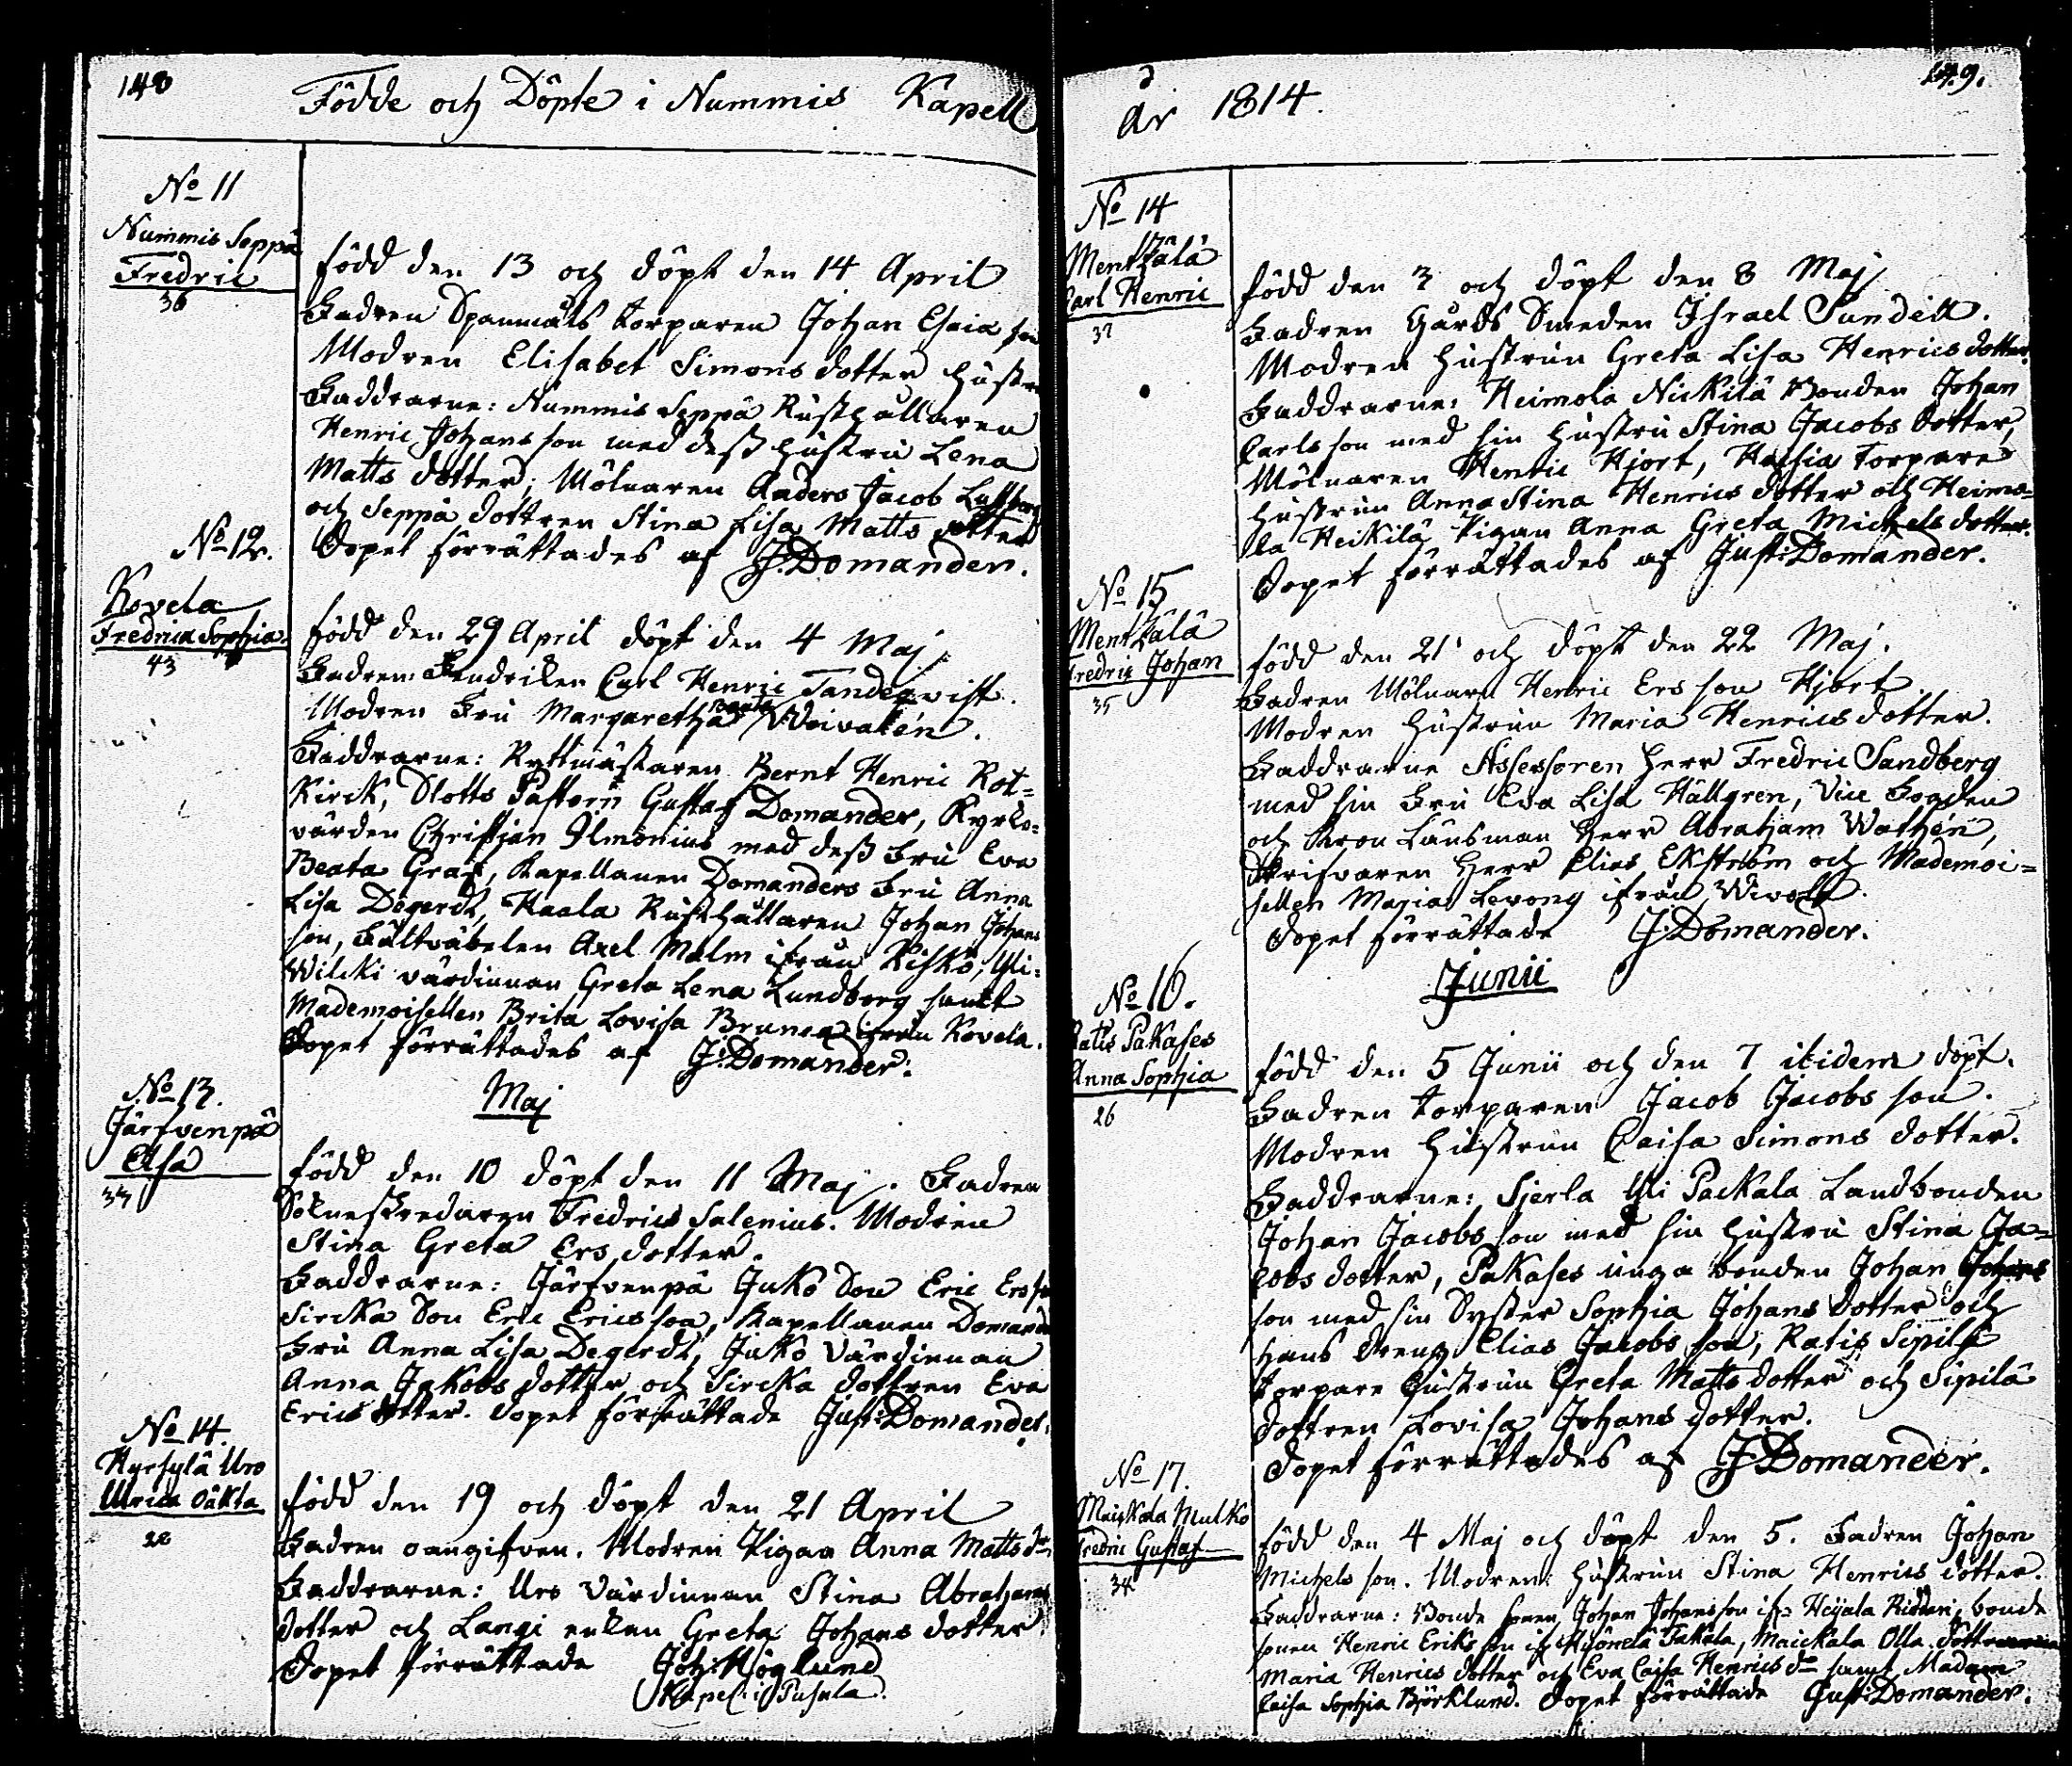 148
Födde och Döpte i Nummis Kapell
No 11
Nummis Seppä
Fredric
36
född den 13 och döpt den 14 April
Fadren Spanmåls torparen Johan Esaia son
Modren Elisabet Simons dotter hustru
Faddrarne: Nummis Seppä Rusthållaren
Henric Johans son med dess hustru Lena
Matts dotter, Mölnaren Anders Jacob
och Seppä dottren Stina Lisa Matts dotter
Dopet förrättades af J. Domander.
No 12.
Kovela
Fredrica Sophia
43
född den 29 April döpt den 4 Maj
Fadren: Fendriken Carl Henric Tandeqvist.
Modren Fru Margaretha Beata Weivalén.
Faddrarne: Ryttmästaren Bernt Henric Rot=
Kirck, Slotts Pastorn Gustaf Domander, Kyrko=
värden Christian Ilmonius med dess Fru Eva
Beata Graf, Kapellanen Domanders Fru Anna
Lisa Degerdt, Haala Rusthållaren Johan Johans
son, Fältväbelen Axel Malm ifrån Kisko, Yli=
Wilcki värdinnan Greta Lena Lundborg samt
Mademoisellen Brita Lovisa Brunea ifrån Kovela.
Dopet förrättades af J: Domander.
Maj
No 13.
Järfvenpä
Elsa
33
född den 10 döpt den 11 Maj. Fadren
Sokneskredaren Fredric Salenius. Modren
Stina Greta Ers dotter.
Faddrarne: Järfvenpä Juko Son Eric Ers son
Sircka Son Eric Erics son, Kapellanen Domanders
Fru Anna Lisa Degerdt, Juko Värdinnan
Anna Jakobs dotter och Sircka dottren Eva
Erics dotter. Dopet förrättade Just: Domander.
No 14.
Hyrsylä Uro
Ulrica oäkta
28
född den 19 och döpt den 21 April
Fadren oangifven. Modren Pigan Anna Matts dr
Faddrarne: Uro Värdinnan Stina Abrahams
dotter och Langi enkan Greta Johans dotter
Dopet förrättade Joh: Höglund
Kapel: i Pusula.
år 1814.
149.
No 14
Mentzälä
Carl Henric
37
född den 3 och döpt den 8 Maj
Fadren Gårds Smeden Israel Sundell.
Modren Hustrun Greta Lisa Henrics dotter.
Faddrarne: Heimola Nickilä Bonden Johan
Carls son med sin Hustru Stina Jacobs dotter,
Mölnaren Henric Hjort, Torpare
hustrun Anna Stina Henrics dotter och Heimo=
la Heikilä Pigan Anna Greta Michels dotter.
Dopet förrättades af Just: Domander.
No 15
Mentzälä
Fredric Johan
35
född den 21 och döpt den 22 Maj.
Fadren Mölnarn Henric Ers son Hjort
Modren Hustrun Maria Henrics dotter.
Faddrarne Assessoren Herr Fredric Sandberg
med sin Fru Eva Lisa Hällgren, Vice Fogden
och Kron Länsman Herr Abraham Wathén,
Skrifvaren Herr Elias Ekström och Mademoi=
sellen Maria Levong ifrån Wivola.
Dopet förrättade J: Domander.
Junii
No 16.
Ratis Pakases
Anna Sophia
26
född den 5 Junii och den 7 itidem döpt.
Fadren torparen Jacob Jacobs son.
Modren Hustrun Caisa Simons dotter.
Faddrarne: Sjerla Yli Packala Landbonden
Johan Jacobs son med sin hustru Stina Ja=
cobs dotter, Pakases unga bonden Johan Johans
son med sin Syster Sophia Johans dotter och
hans dreng Elias Jacobs son, Ratis Sipilä
torpare Hustrun Greta Matts dotter och Sipilä
dottren Lovisa Johans dotter.
Dopet förrättades af J Domander.
No 17.
Maickala Mulko
Fredric Gustaf
34
född den 4 Maj och döpt den 5. Fadren Johan
Michels son. Modren: Hustrun Stina Henrics dotter.
Faddrarne: Bonde sonen Johan Johans son ifr Heijala Riddari, bonde
sonen Henric Eriks son ifr Hyönelä Takala, Maickala Olla
Maria Henrics dotter och Eva Caisa Henrics dr samt Madam
Caisa Sophia Björklund. Dopet förrättade Just: Domander.